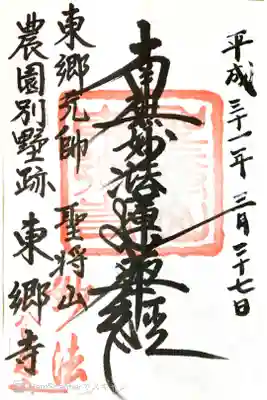 平成三十一年三月二十七日
南無妙法蓮華経
東郷元帥 聖将山
農園別墅跡 東郷寺
妙法